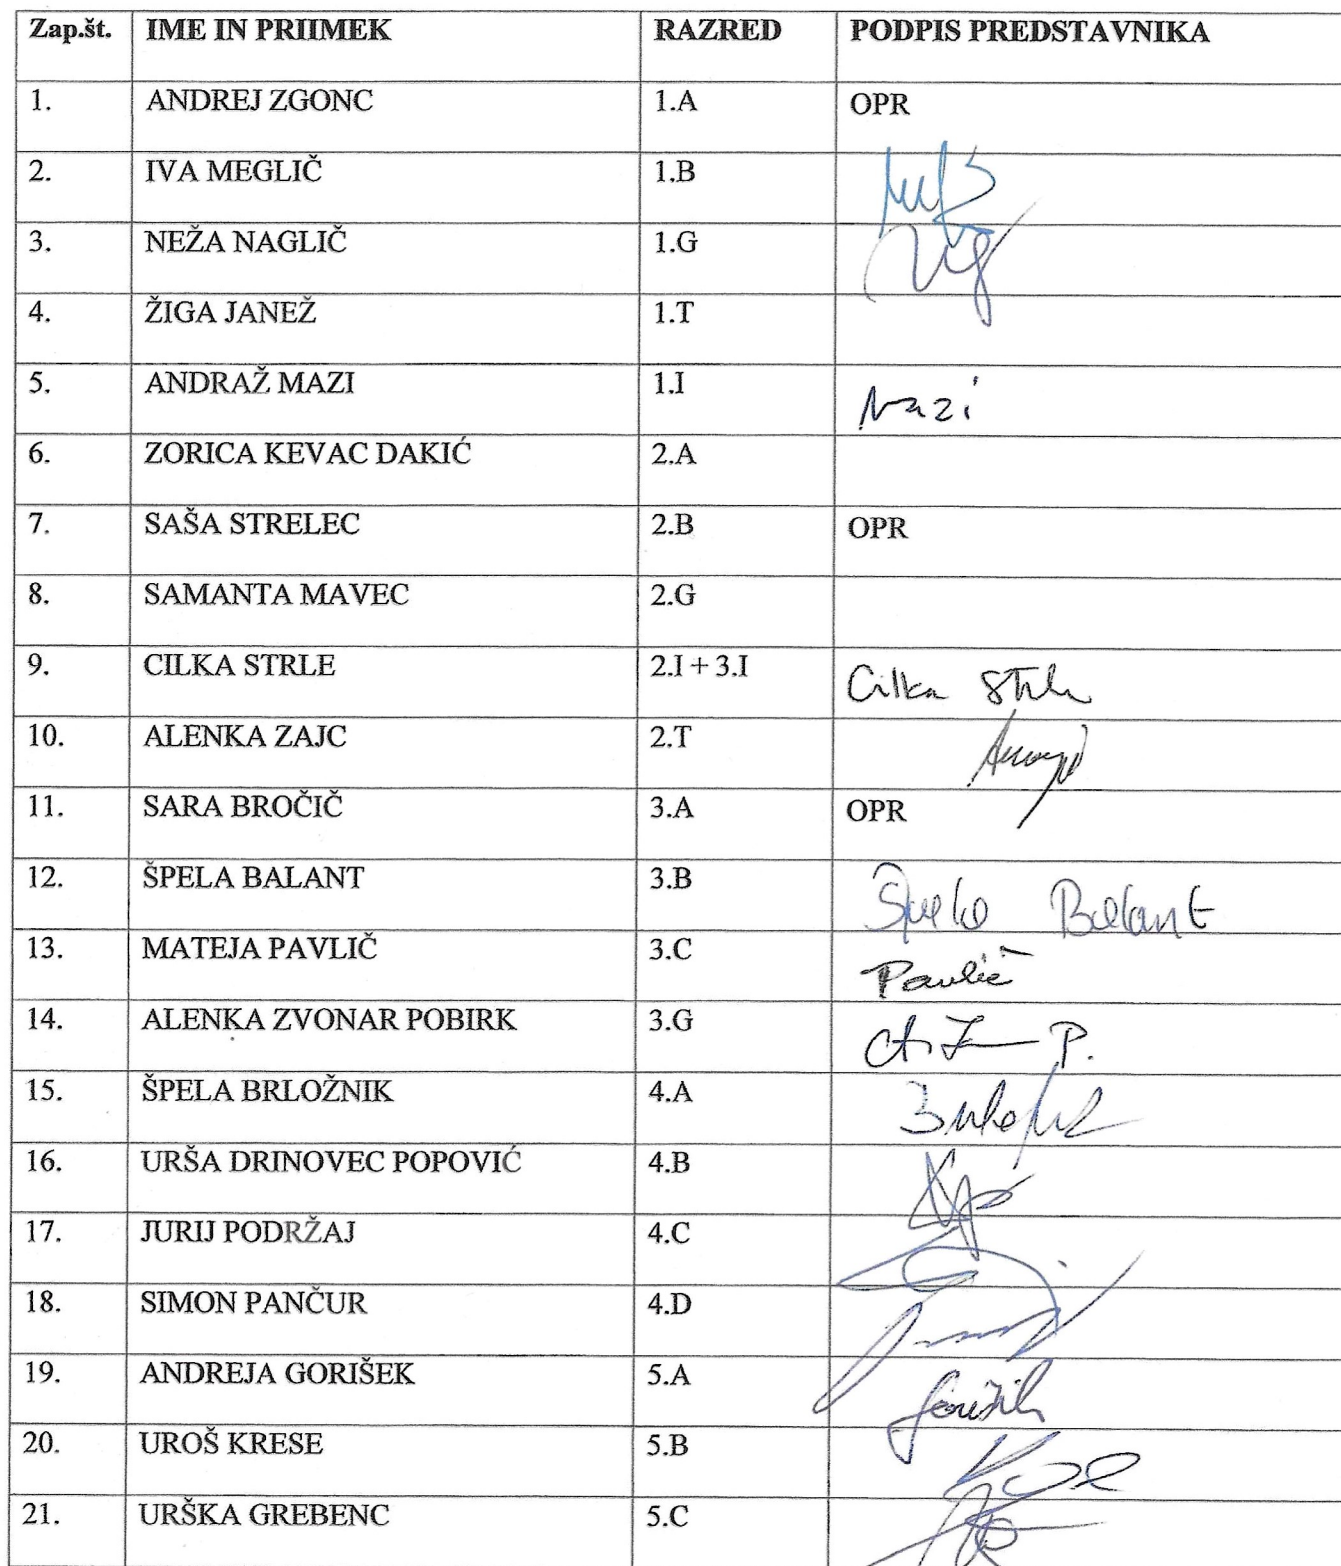 Zap.št. IME IN PRIIMEK RAZRED PODPIS PREDSTAVNIKA
1. ANDREJ ZGONC 1.A OPR
2. IVA MEGLIČ 1.B
3. NEŽA NAGLIČ 1.G
4. ŽIGA JANEŽ 1.T
5. ANDRAŽ MAZI 1.I Mazi
6. ZORICA KEVAC DAKIĆ 2.A
7. SAŠA STRELEC 2.B OPR
8. SAMANTA MAVEC 2.G
9. CILKA STRLE 2.I + 3.I Cilka Strle
10. ALENKA ZAJC 2.T
11. SARA BROČIČ 3.A OPR
12. ŠPELA BALANT 3.B Špela Balant
13. MATEJA PAVLIČ 3.C Pavlič
14. ALENKA ZVONAR POBIRK 3.G
15. ŠPELA BRLOŽNIK 4.A
16. URŠA DRINOVEC POPOVIĆ 4.B
17. JURIJ PODRŽAJ 4.C
18. SIMON PANČUR 4.D
19. ANDREJA GORIŠEK 5.A
20. UROŠ KRESE 5.B
21. URŠKA GREBENC 5.C